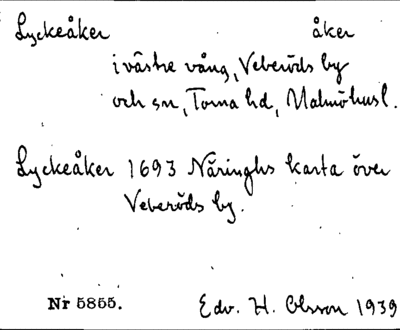 Lyckeåker åker
i västre vång, Veberöds by
och sn, Torna hd, Malmöhusl.
Lyckeåker 1693 Näringhs karta över
Veberöds by.
Nr 5855. Edv. H. Olsson 1939